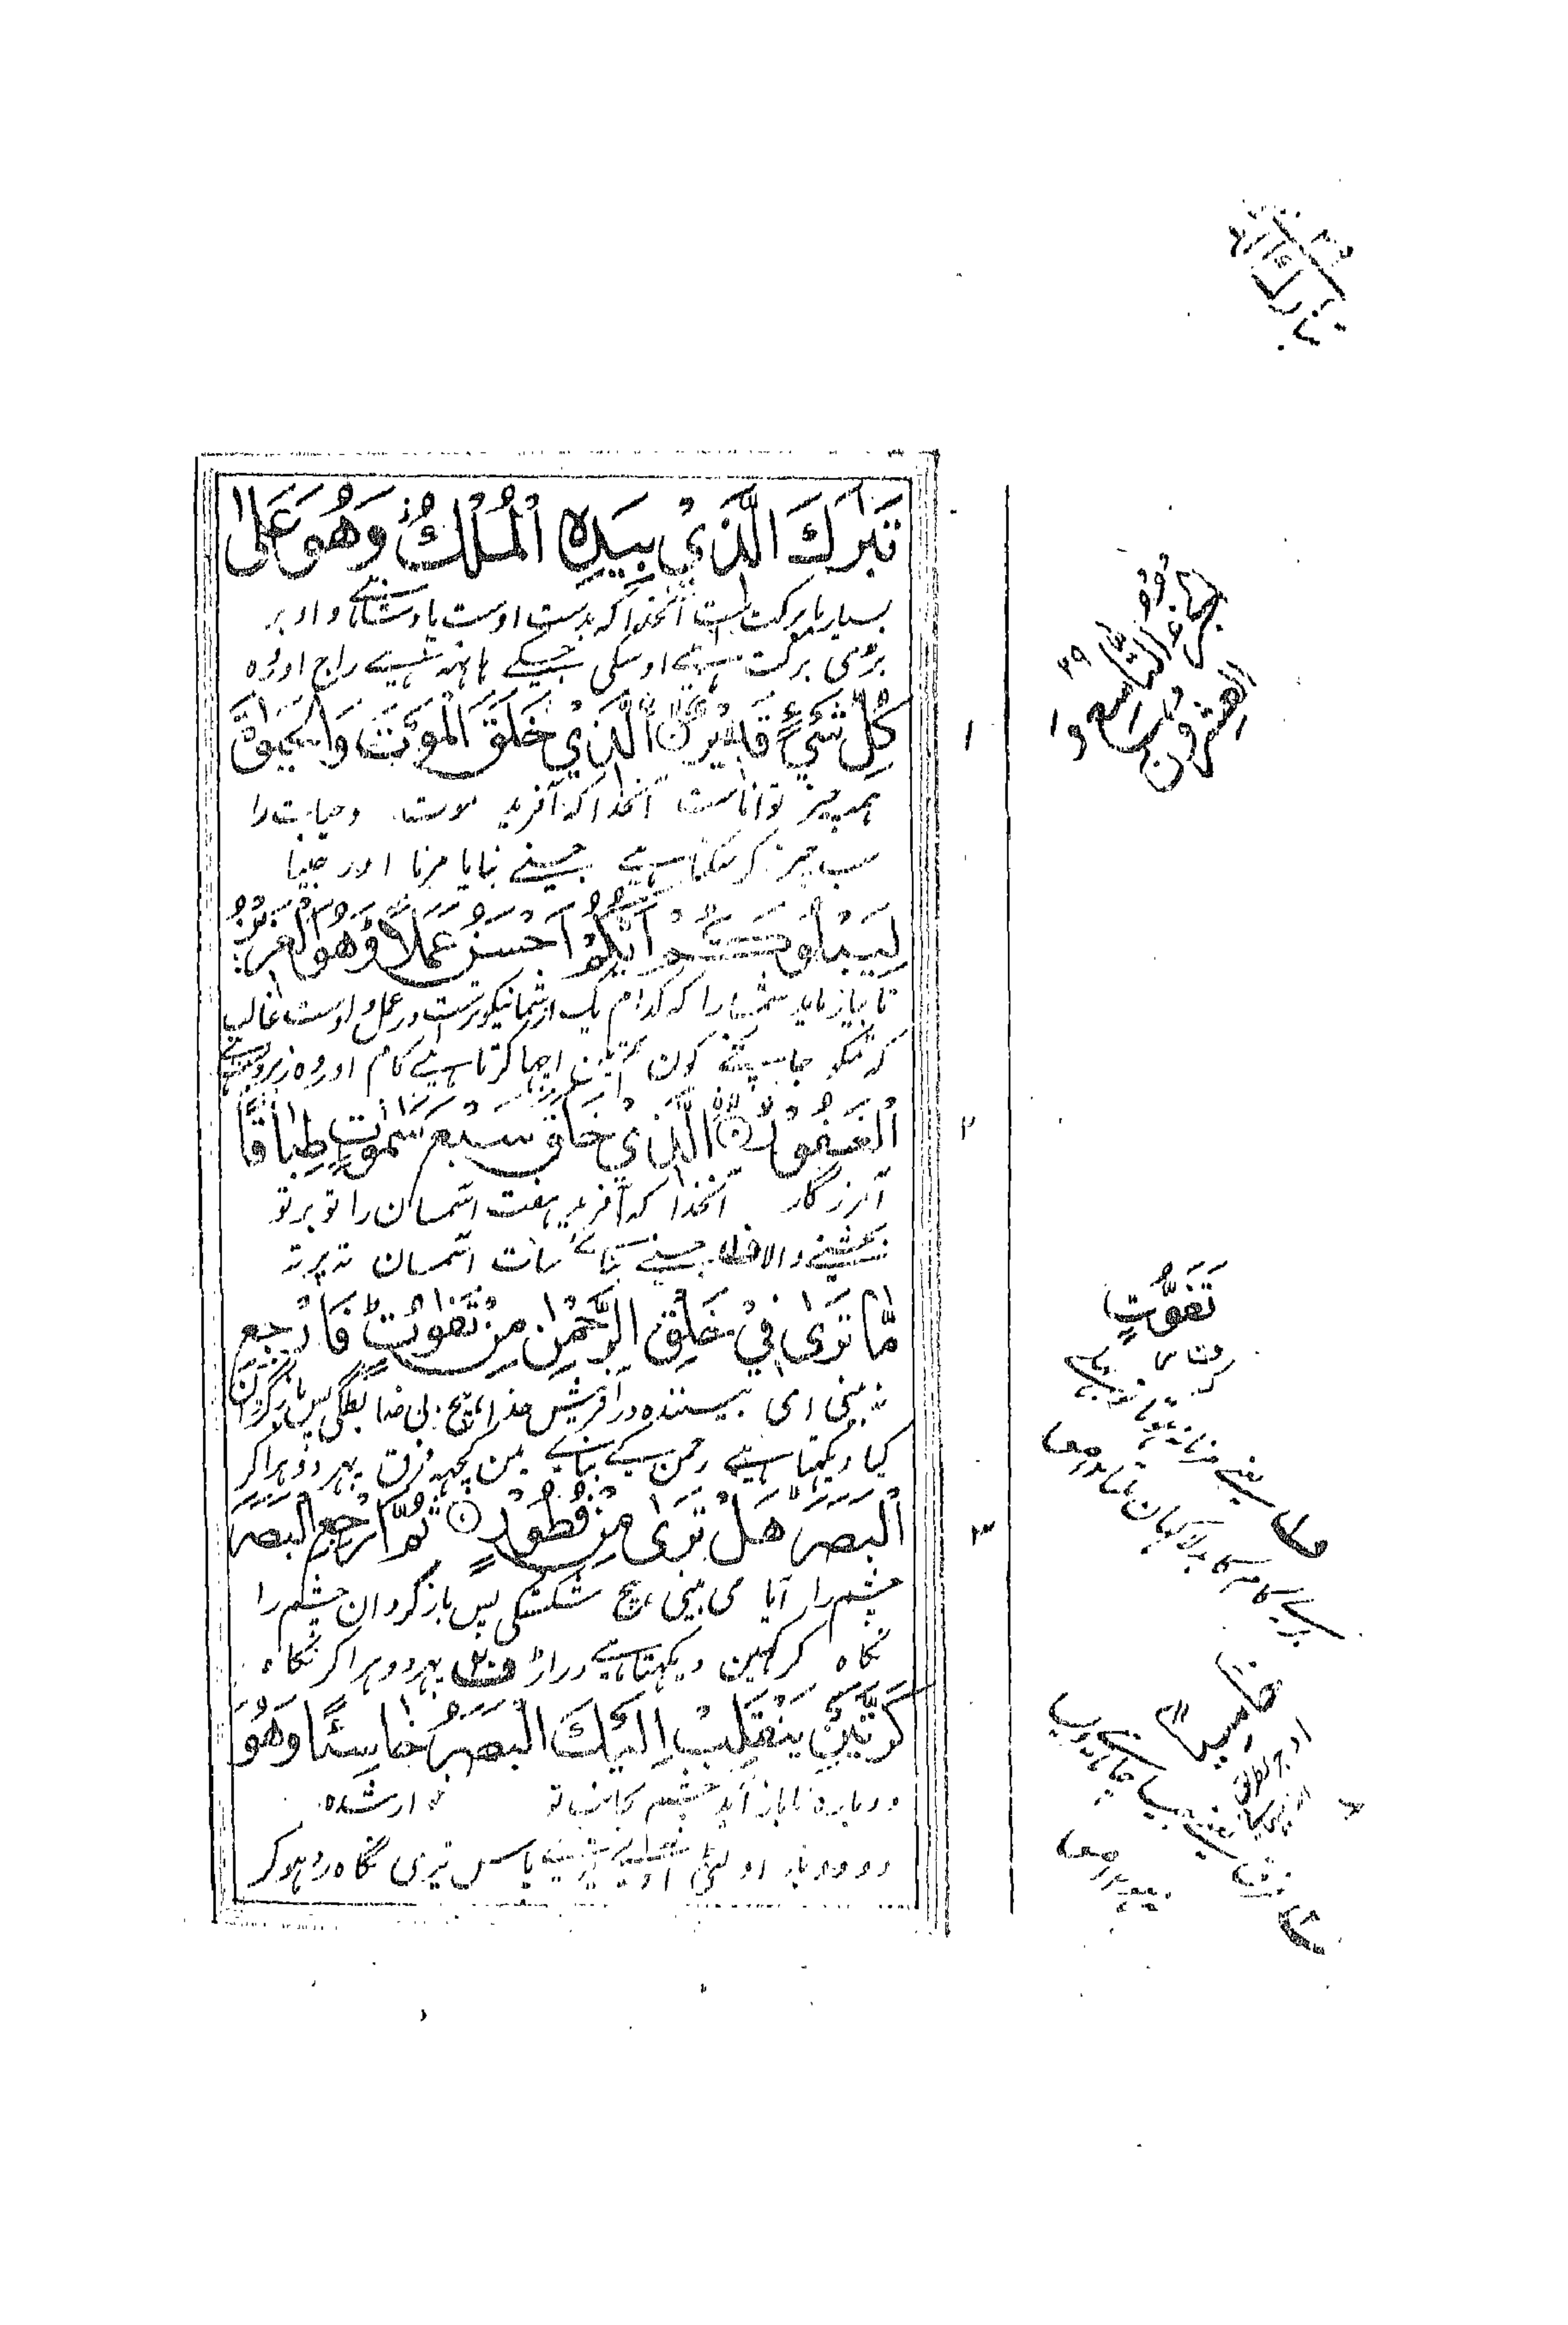 تبارك الذ
٢٩
الجزء التاسع و
العشرون
تَبٰرَكَ الَّذِيْ بِيَدِهِ الْمُلْكُ وَهُوَ عَلٰى
بسیار بابرکت است آنخدا که بدست اوست پادشاهی و او بر
بڑی برکت ہے اوسکی جسکے ہاتھہ ہے راج اور وہ
كُلِّ شَيْءٍ قَدِيْرٌ ۝ الَّذِيْ خَلَقَ الْمَوْتَ وَالْحَيٰوةَ
١
همه چیز تواناست آنخدا که آفرید موت وحیات را
سب چیز کرسکتا ہے جسنے بنایا مرنا اور جینا
لِيَبْلُوَكُمْ اَيُّكُمْ اَحْسَنُ عَمَلًا وَهُوَ الْعَزِيْزُ
تا بیازماید شما را که کدام یک از شما نیکوترست در عمل و اوست غالب
کہ تمکو جانچے کون تمین اچھا کرتا ہے کام اور وہ زبردست ہے
الْغَفُوْرُ ۝ الَّذِيْ خَلَقَ سَبْعَ سَمٰوٰتٍ طِبَاقًا
٢
آمرزگار آنخدا که آفرید هفت آسمان را تو بر تو
بخشنے والا جسنے بنائے سات آسمان تہ پر تہ
مَّا تَرٰى فِيْ خَلْقِ الرَّحْمٰنِ مِنْ تَفٰوُتٍ فَارْجِعِ
نه بینی ای بیننده در آفرینش خدا هیچ بی ضابطگی پس بازگردان
کیا دیکہتا ہے رحمن کے بنائے مین کچہہ فرق پہر دوہرا کر
الْبَصَرَ هَلْ تَرٰى مِنْ فُطُوْرٍ ۝ ثُمَّ ارْجِعِ الْبَصَرَ
٣
چشم را آیا می بینی هیچ شکستگی پس بازگردان چشم را
نگاہ کر کہین دیکہتا ہے دراڑ پہر دوہرا کر نگاہ
كَرَّتَيْنِ يَنْقَلِبْ اِلَيْكَ الْبَصَرُ خَاسِئًا وَهُوَ
دوباره تا باز آید چشم بجانب تو خوار شده
دو دو بار اولٹی آوے تیرے پاس تیری نگاہ رد ہوکر
تَفَوُّتٍ
خَاسِيًا